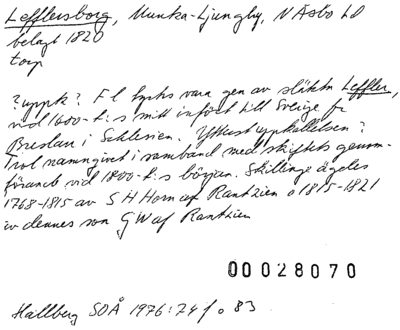 Lefflersborg, Munka-Ljungby, N Åsbo hd
belagt 1820
torp
? uppk? F l tycks vara gen av släktn Leffler,
vid 1600-t:s mitt införd till Sverige fr
Breslau i Schlesien. Yttkust uppkallelsen?
Trol namngivet i samband med skiftets genom-
förande vid 1800-t:s början. Skillinge ägdes
1768-1815 av S H Horn af Rantzien o 1815-1821
av dennes son G W af Rantzien
00028070
Hallberg SOÅ 1976:74 f o 83